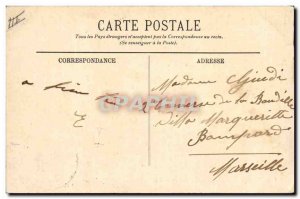 CARTE POSTALE
Tous les Pays étrangers n'acceptent pas la Correspondance au recto.
(Se renseigner à la Poste).
CORRESPONDANCE
ADRESSE
Madame
a bien
2 Traverse de la
E
Villa Marguerite
Bompard
Marseille